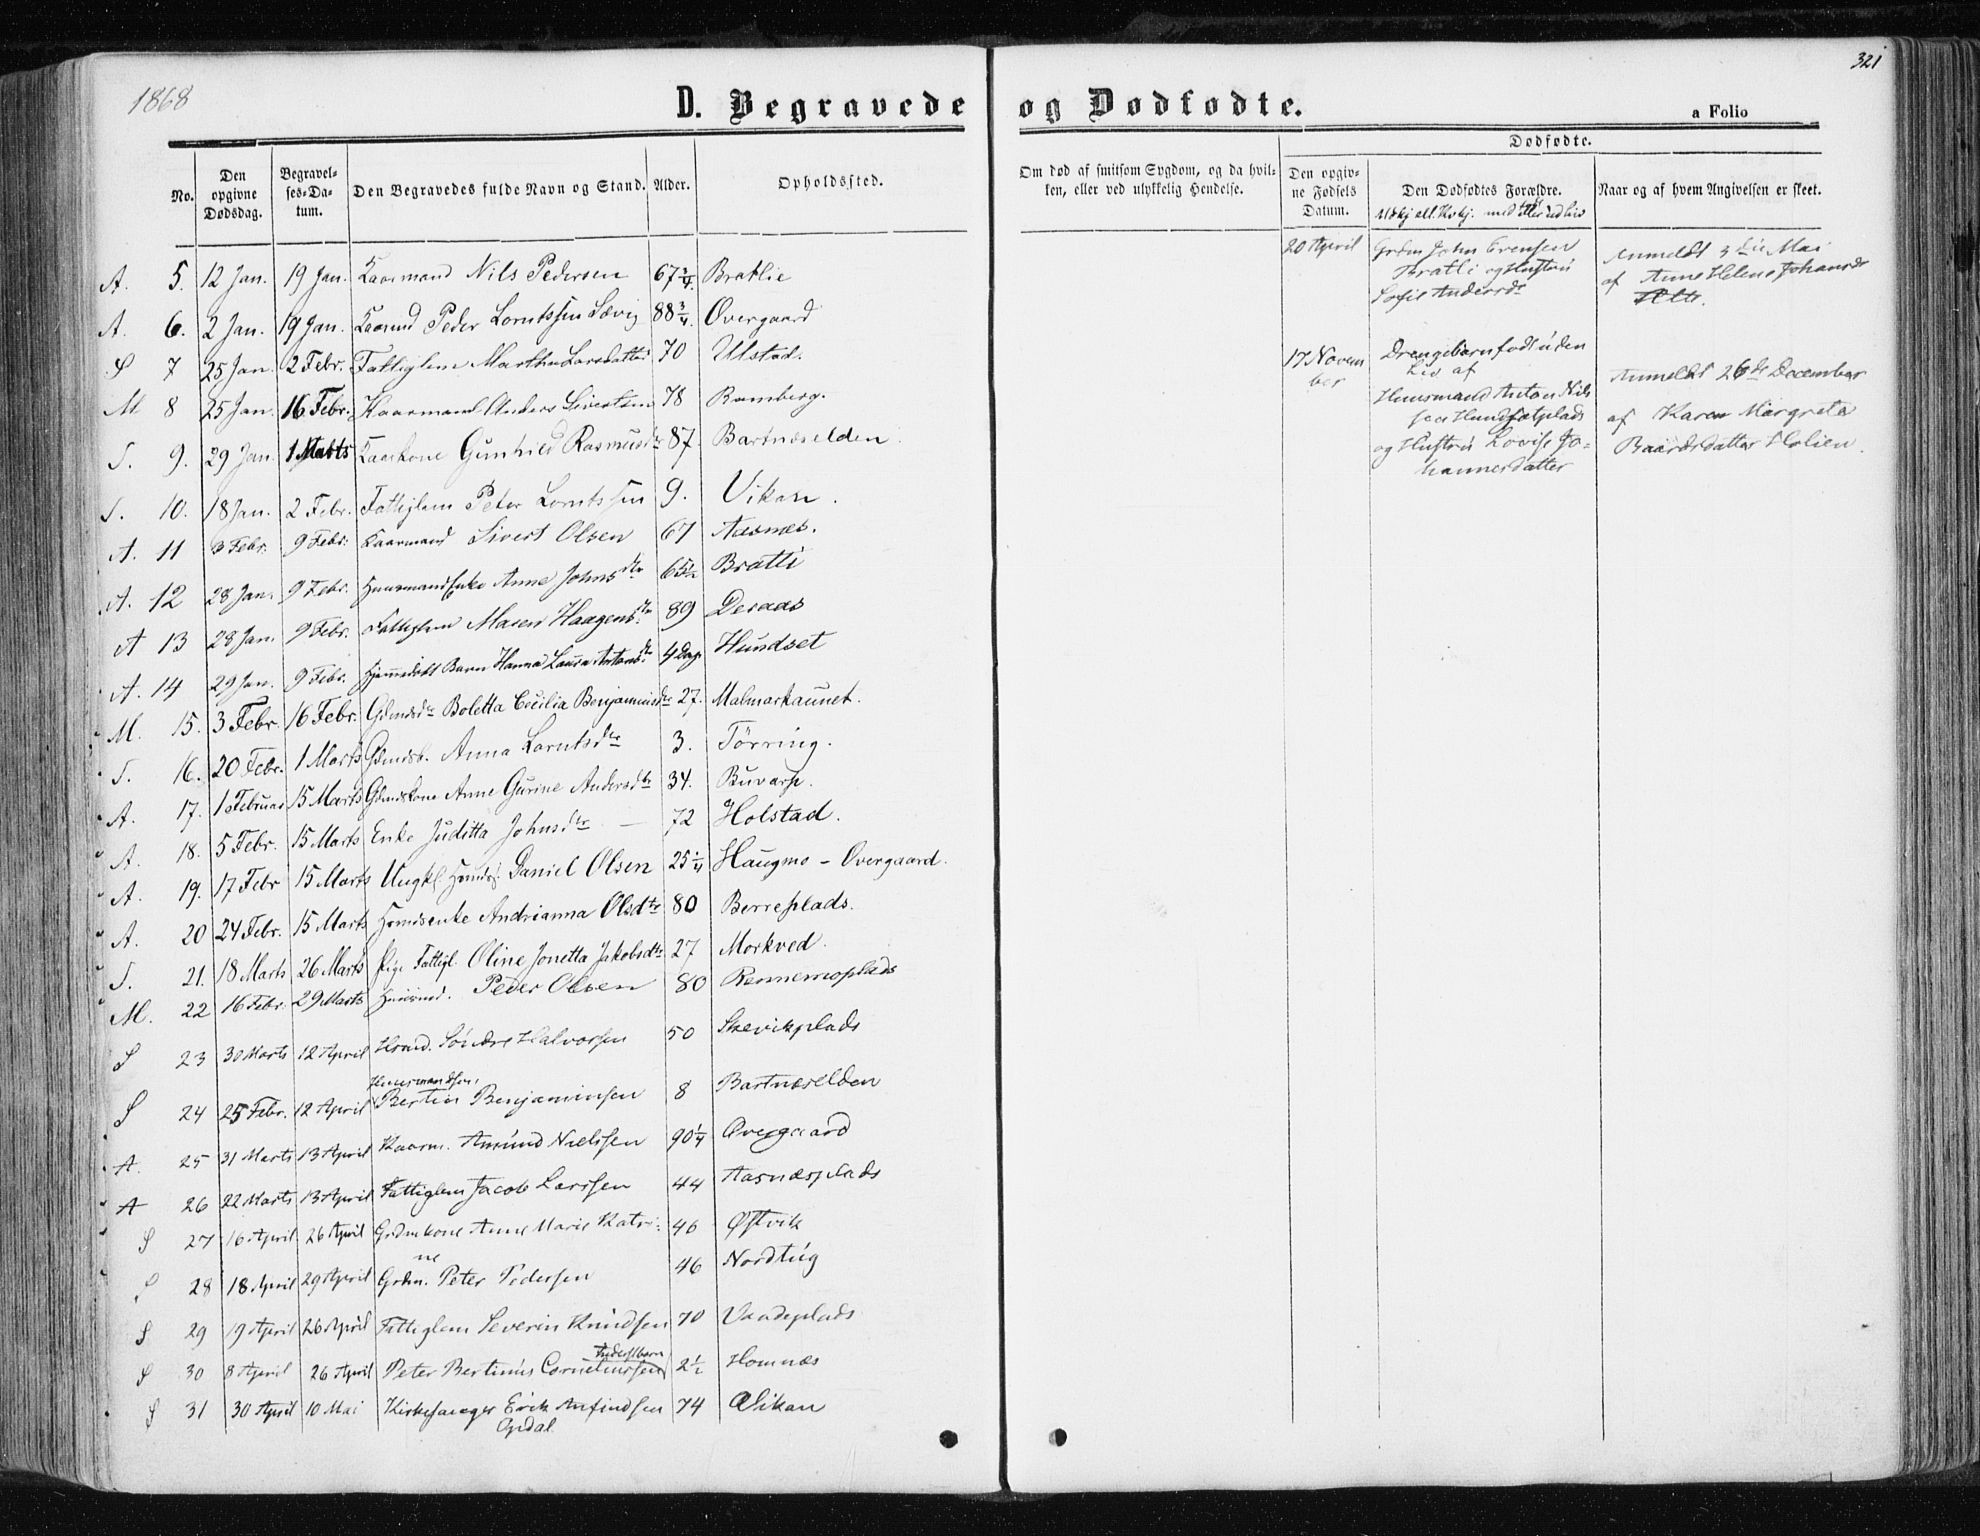 1868
D. Begravede og Dødfødte.
a Folio
321
No.
Den opgivne Dødsdag.
Begravelses-Datum.
Den Begravedes fulde Navn og Stand.
Alder.
Opholdssted.
Om død af smitsom Sygdom, og da hvilken, eller ved ulykkelig Hendelse.
Dødfødte.
Den opgivne Fødsels Datum.
Den Dødfødtes Forældre.
Naar og af hvem Angivelsen er skeet.
A. 5. 12 Jan. 19 Jan. Kaarmand Nils Pedersen 67 3/4 Bratlie
A. 6. 2 Jan. 19 Jan. Kaarmd Peder Lorntssen Sævig 88 3/4 Overgaard
S 7 25 Jan. 2 Febr. Fattiglem Martha Larsdatter 70 Ulstad.
M 8 25 Jan. 16 Febr. Kaarmand Anders Sivertsen 78 Ramberg.
S. 9. 29 Jan. 1 Marts Kaarkone Gunhild Rasmusdtr 87 Bartnæselden
S. 10. 18 Jan. 2 Febr. Fattiglem Peter Lorntssen 9. Vikan.
A. 11 3 Febr. 9 Febr. Kaarmand Sivert Olsen 67 Aasnes.
A. 12 28 Jan. 9 Febr. Huusmandsenke Anne Johnsdtr 65 1/2 Bratli
A 13 28 Jan. 9 Febr. Fattiglem Maren Haagensdtr 89 Deraas
A. 14 29 Jan. 9 Febr. Hjemmedøbt Barn Hanna Laura Antonsdtr 4 Dage Hundset
M. 15. 3 Febr. 16 Febr. Gdmdsdr Boletta Cecilia Benjaminsdtr 27. Malmarkaunet.
S. 16. 20 Febr. 1 Marts Gdmdsb. Anna Larntsdtr 3. Tørring.
A. 17. 1 Februar 15 Marts Gdmdskone Anne Gurine Andersdtr 34. Buvarp.
A. 18. 5 Febr. 15 Marts Enke Juditta Johnsdtr — 72 Holstad.
A. 19. 17 Febr 15 Marts Ungkl. Hsmds. Daniel Olsen 25 1/4 Haugmo – Overgaard.
A. 20 24 Febr. 15 Marts Hsmdsenke Andrianna Olsdtr 80 Berreplads.
S. 21. 18 Marts 26 Marts Pige Fattigl. Oline Jonetta Jakobsdtr 27 Morkved.
M. 22 16 Febr. 29 Marts Huusmd. Peder Olsen 80 Rennemoplads
S 23 30 Marts 12 April Hsmd. Søndre Halvorsen 50 Skevikplads
S 24 25 Febr. 12 April Huusmandssøn, Bertin Benjaminsen 8 Bartnæselden
A. 25 31 Marts 13 April Kaarm. Amund Nielssen 90 1/4 Overgaard
A 26 22 Marts 13 April Fattiglem Jacob Larssen 44 Aasnæsplads
S 27 16 April 26 April Grdmkone Anne Marie Katrine 46 Østvik
S 28 18 April 29 April Grdm. Peter Pedersen 46 Nordtug
S 29 19 April 26 April Fattiglem Severin Knudsen 70 Vaadeplads
S 30 8 April 26 April Peter Bertinus Corneliussen Inderstbarn 2 1/2 Homnæs
S 31 30 April 10 Mai Kirkesanger Erik Anfindsen Opdal 74 Vikan
20 April
Grdm John Evensen
Bratli og Hustru
Sofie Andersdr
Anmeldt 3die Mai
af Anne Helene Johansdr
17 November
Drengebarn født uden
Liv af
Huusmand Anton Nilssen Hundsetplads
og Hustru Lovise Johannesdatter
Anmeldt 26de December
af Karen Margreta
Baardsdatter Holien.